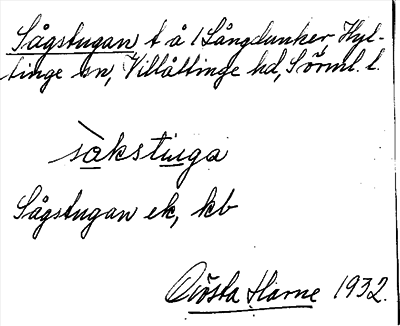 Sågstugan t å 1 Långdunker, Hyl-
tinge sn, Villåttinge hd, Sörml. l.
såkstuga
Sågstugan ek, kb
Gösta Harne 1932.